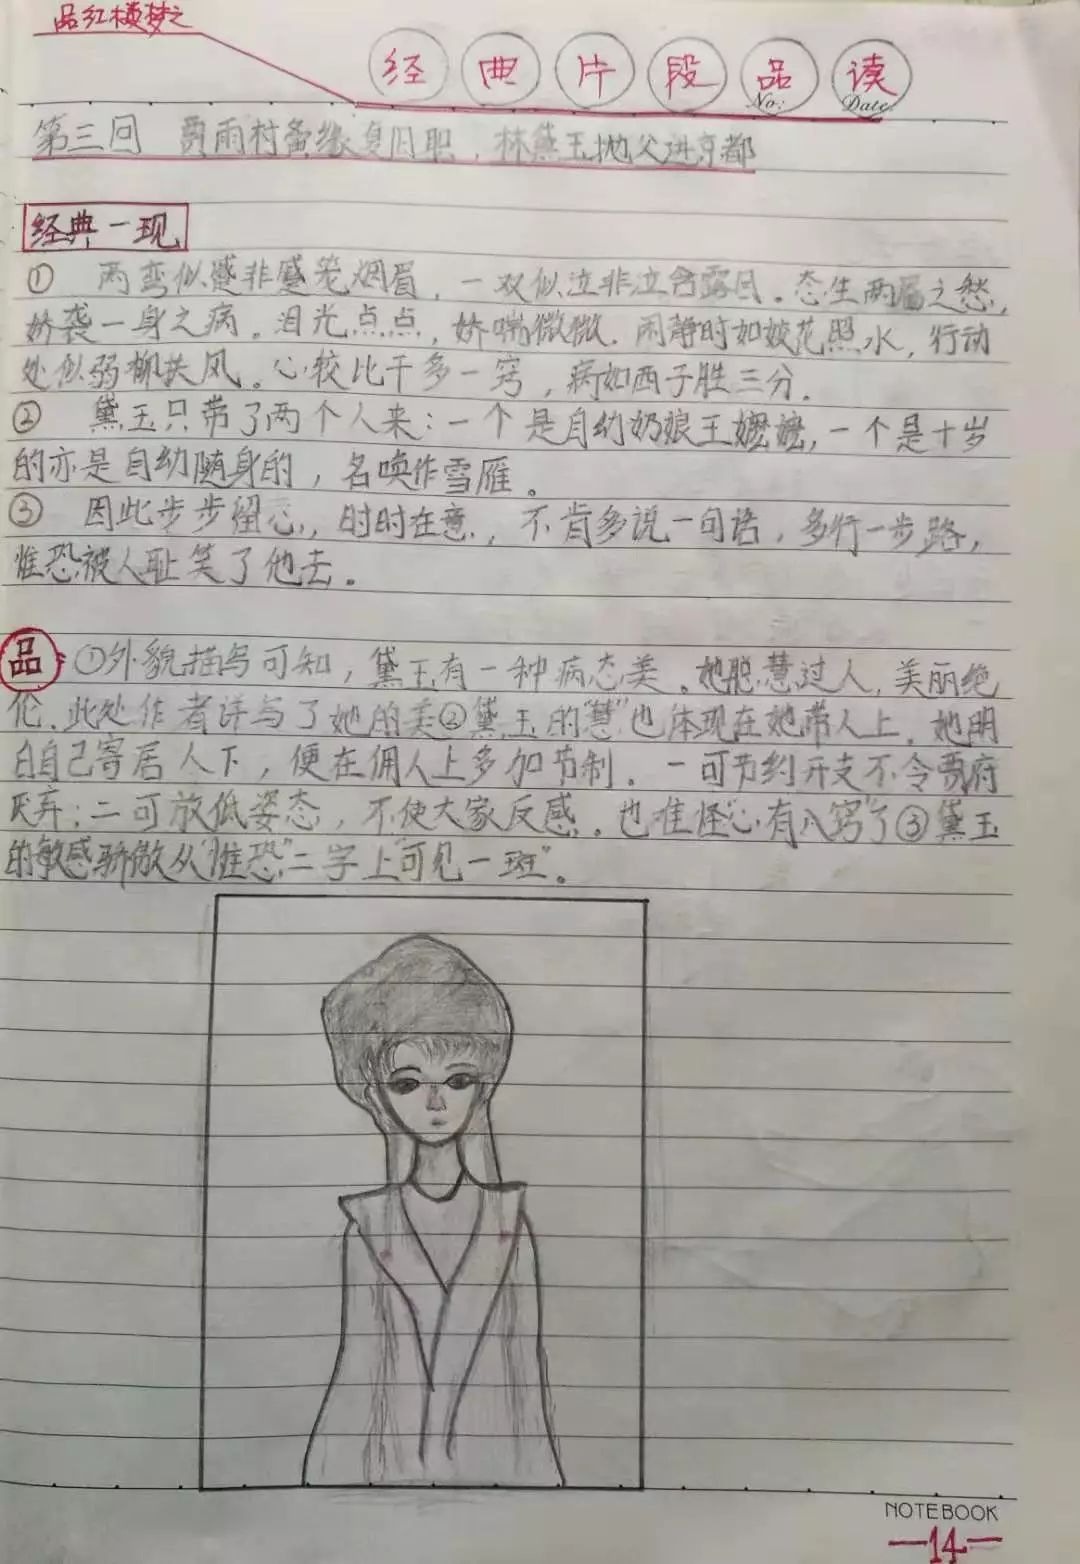 品红楼梦之
经典片段品读
No: Date
第三回 贾雨村夤缘复旧职，林黛玉抛父进京都
经典一现
① 两弯似蹙非蹙笼烟眉，一双似泣非泣含露目。态生两靥之愁，
娇袭一身之病。泪光点点，娇喘微微。闲静时如姣花照水，行动
处似弱柳扶风。心较比干多一窍，病如西子胜三分。
② 黛玉只带了两个人来：一个是自幼奶娘王嬷嬷，一个是十岁
的亦是自幼随身的，名唤作雪雁。
③ 因此步步留心，时时在意，不肯多说一句话，多行一步路，
惟恐被人耻笑了他去。
品 ①外貌描写可知，黛玉有一种病态美。她聪慧过人，美丽绝
伦。此处作者详写了她的美②黛玉的“慧”也体现在她带人上。她明
白自己寄居人下，便在佣人上多加节制。一可节约开支不令贾府
厌弃；二可放低姿态，不使大家反感。也难怪“心有八窍”了③黛玉
的敏感骄傲从“惟恐”二字上“可见一斑”。
NOTEBOOK
—14—